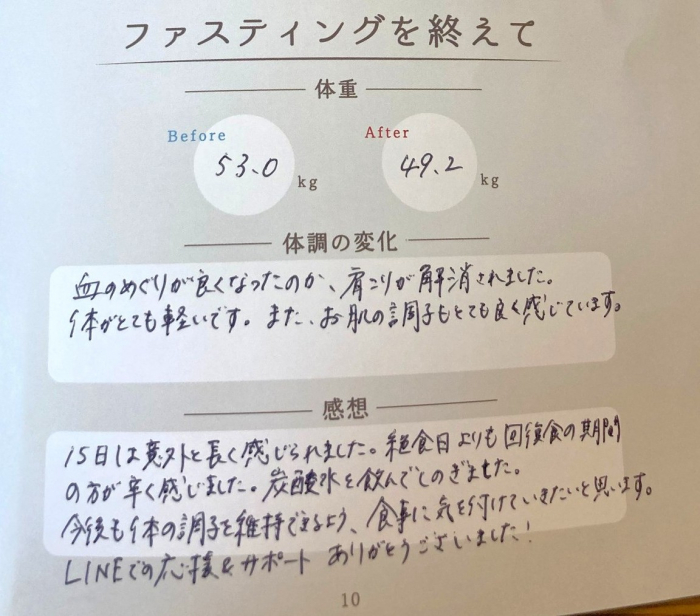 ファスティングを終えて
体重
Before
After
53.0
kg
49.2
kg
体調の変化
血のめぐりが良くなったのか、肩こりが解消されました。
体がとても軽いです。また、お肌の調子もとても良く感じています。
感想
15日は意外と長く感じられました。絶食日よりも回復食の期間
の方が辛く感じました。炭酸水を飲んでしのぎました。
今後も体の調子を維持できるよう、食事に気を付けていきたいと思います。
LINEでの応援&サポート ありがとうございました!
10